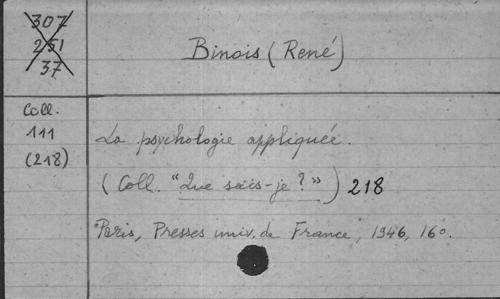 307
251
37
Binois (René)
Coll.
111
(218)
La psychologie appliquée.
(Coll. "Que sais-je?") 218
Paris, Presses univ. de France, 1946, 160.